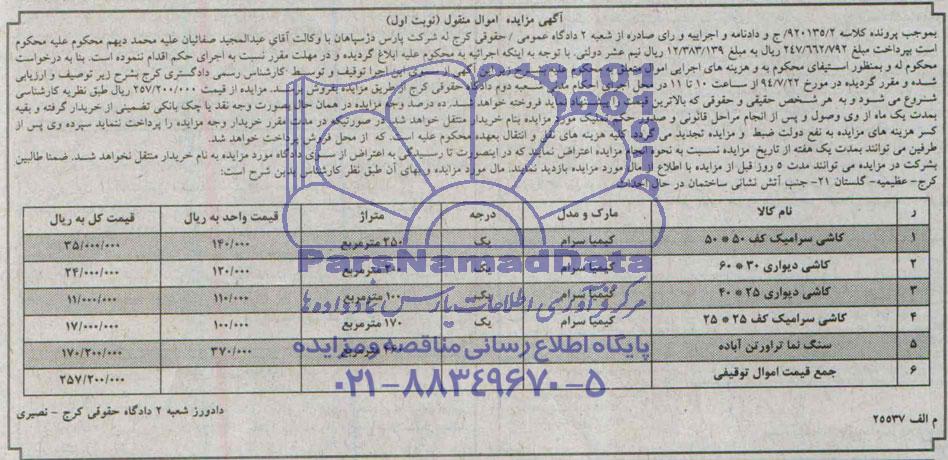 آگهی مزایده اموال منقول (نوبت اول)
بموجب پرونده کلاسه ۹۲۰۱۳۵/۲/ ج و دادنامه و اجراییه و رای صادره از شعبه ۲ دادگاه عمومی / حقوقی کرج له شرکت پارس دژسپاهان با وکالت آقای عبدالمجید صفائیان علیه محمد دیهم محکوم علیه محکوم
است بپرداخت مبلغ ۲۴۷/۶۶۲/۷۹۲ ریال به مبلغ ۱۲/۳۸۳/۱۳۹ ریال نیم عشر دولتی. با توجه به اینکه اجرائیه به محکوم علیه ابلاغ گردیده و در مهلت مقرر نسبت به اجرای حکم اقدام ننموده است. بنا به درخواست
محکوم له و بمنظور استیفای محکوم به و هزینه های اجرایی اموال متعلق به محکوم علیه بشرح زیر این آگهی از سوی این اجرا توقیف و توسط کارشناس رسمی دادگستری کرج بشرح زیر توصیف و ارزیابی
شده و مقرر گردیده در مورخ ۹۴/۷/۲۲ از ساعت ۱۰ تا ۱۱ در محل اجرای احکام مدنی شعبه دوم دادگاه حقوقی کرج از طریق مزایده بفروش رسد. مزایده از قیمت ۲۵۷/۲۰۰/۰۰۰ ریال طبق نظریه کارشناسی
شروع می شود و به هر شخص حقیقی و حقوقی که بالاترین قیمت را پیشنهاد نماید فروخته خواهد شد. ده درصد وجه مزایده در همان حال بصورت وجه نقد یا چک بانکی تضمینی از خریدار گرفته و بقیه
بمدت یک ماه از وی وصول و پس از انجام مراحل قانونی و صدور حکم تملیک مورد مزایده بنام خریدار منتقل خواهد شد. و در صورتیکه در مدت مقرر خریدار وجه مزایده را پرداخت ننماید سپرده وی پس از
کسر هزینه های مزایده به نفع دولت ضبط و مزایده تجدید می گردد. کلیه هزینه های نقل و انتقال بعهده محکوم علیه است. که از محل فروش پرداخت خواهد شد.
طرفین می توانند بمدت یک هفته از تاریخ مزایده نسبت به نحوه انجام مزایده اعتراض نمایند که در اینصورت تا رسیدگی به اعتراض از سوی دادگاه مورد مزایده به نام خریدار منتقل نخواهد شد. ضمنا طالبین
بشرکت در مزایده می توانند مدت ۵ روز قبل از مزایده با اطلاع از مال مورد مزایده بازدید نمایند. مال مورد مزایده و بهای آن طبق نظر کارشناس بدین شرح است:
کرج- عظیمیه- گلستان ۲۱- جنب آتش نشانی ساختمان در حال احداث
ر نام کالا مارک و مدل درجه متراژ قیمت واحد به ریال قیمت کل به ریال
۱ کاشی سرامیک کف ۵۰ * ۵۰ کیمیا سرام یک ۲۵۰ مترمربع ۱۴۰/۰۰۰ ۳۵/۰۰۰/۰۰۰
۲ کاشی دیواری ۳۰ * ۶۰ کیمیا سرام یک ۲۰۰ مترمربع ۱۲۰/۰۰۰ ۲۴/۰۰۰/۰۰۰
۳ کاشی دیواری ۲۵ * ۴۰ کیمیا سرام یک ۱۰۰ مترمربع ۱۱۰/۰۰۰ ۱۱/۰۰۰/۰۰۰
۴ کاشی سرامیک کف ۲۵ * ۲۵ کیمیا سرام یک ۱۷۰ مترمربع ۱۰۰/۰۰۰ ۱۷/۰۰۰/۰۰۰
۵ سنگ نما تراورتن آباده ۳۷۰/۰۰۰ ۱۷۰/۲۰۰/۰۰۰
۶ جمع قیمت اموال توقیفی ۲۵۷/۲۰۰/۰۰۰
م الف ۲۵۵۳۷
دادورز شعبه ۲ دادگاه حقوقی کرج - نصیری
ParsNamadData
مرکز فرآوری اطلاعات پارس نماد داده ها
پایگاه اطلاع رسانی مناقصه و مزایده
۰۲۱-۸۸۳۴۹۶۷۰-۵